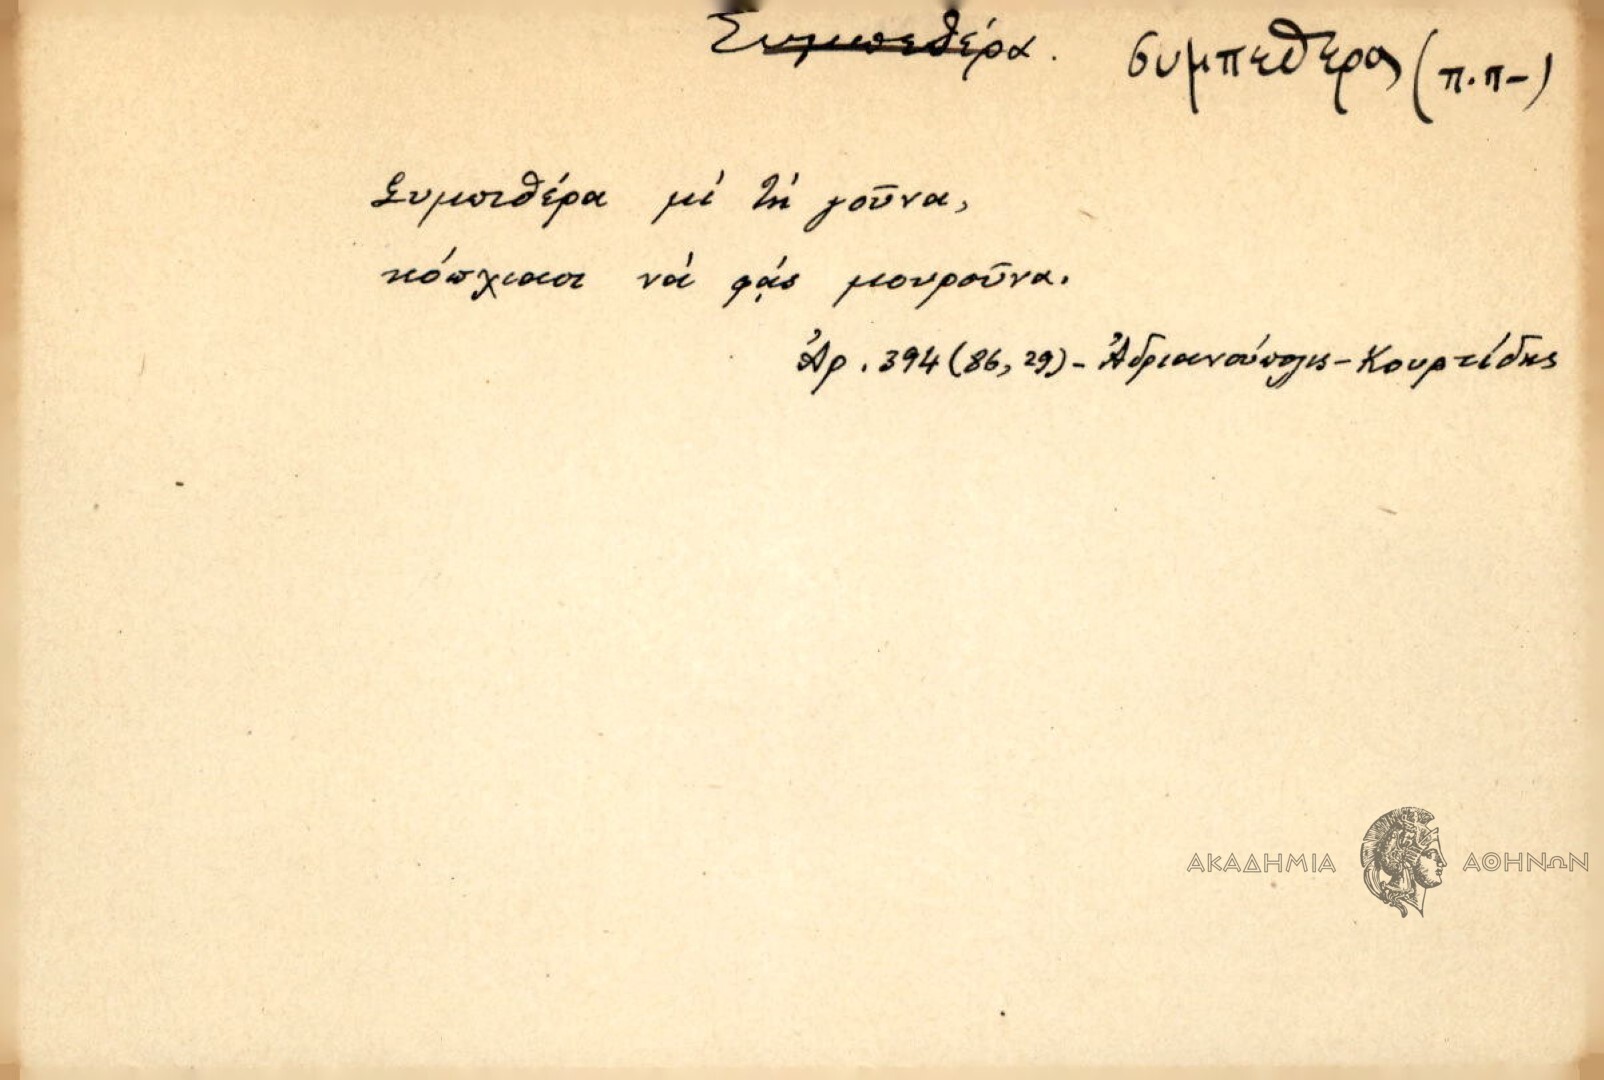 Συμπεθέρα. συμπεθέρα (π.π-)
Συμπεθέρα μὲ τὴ γοῦνα,
κόπχιασι νὰ φᾷς μουροῦνα.
Ἀρ. 394 (86, 29) - Ἀδριανούπολις - Κουρτίδης
ΑΚΑΔΗΜΙΑ ΑΘΗΝΩΝ